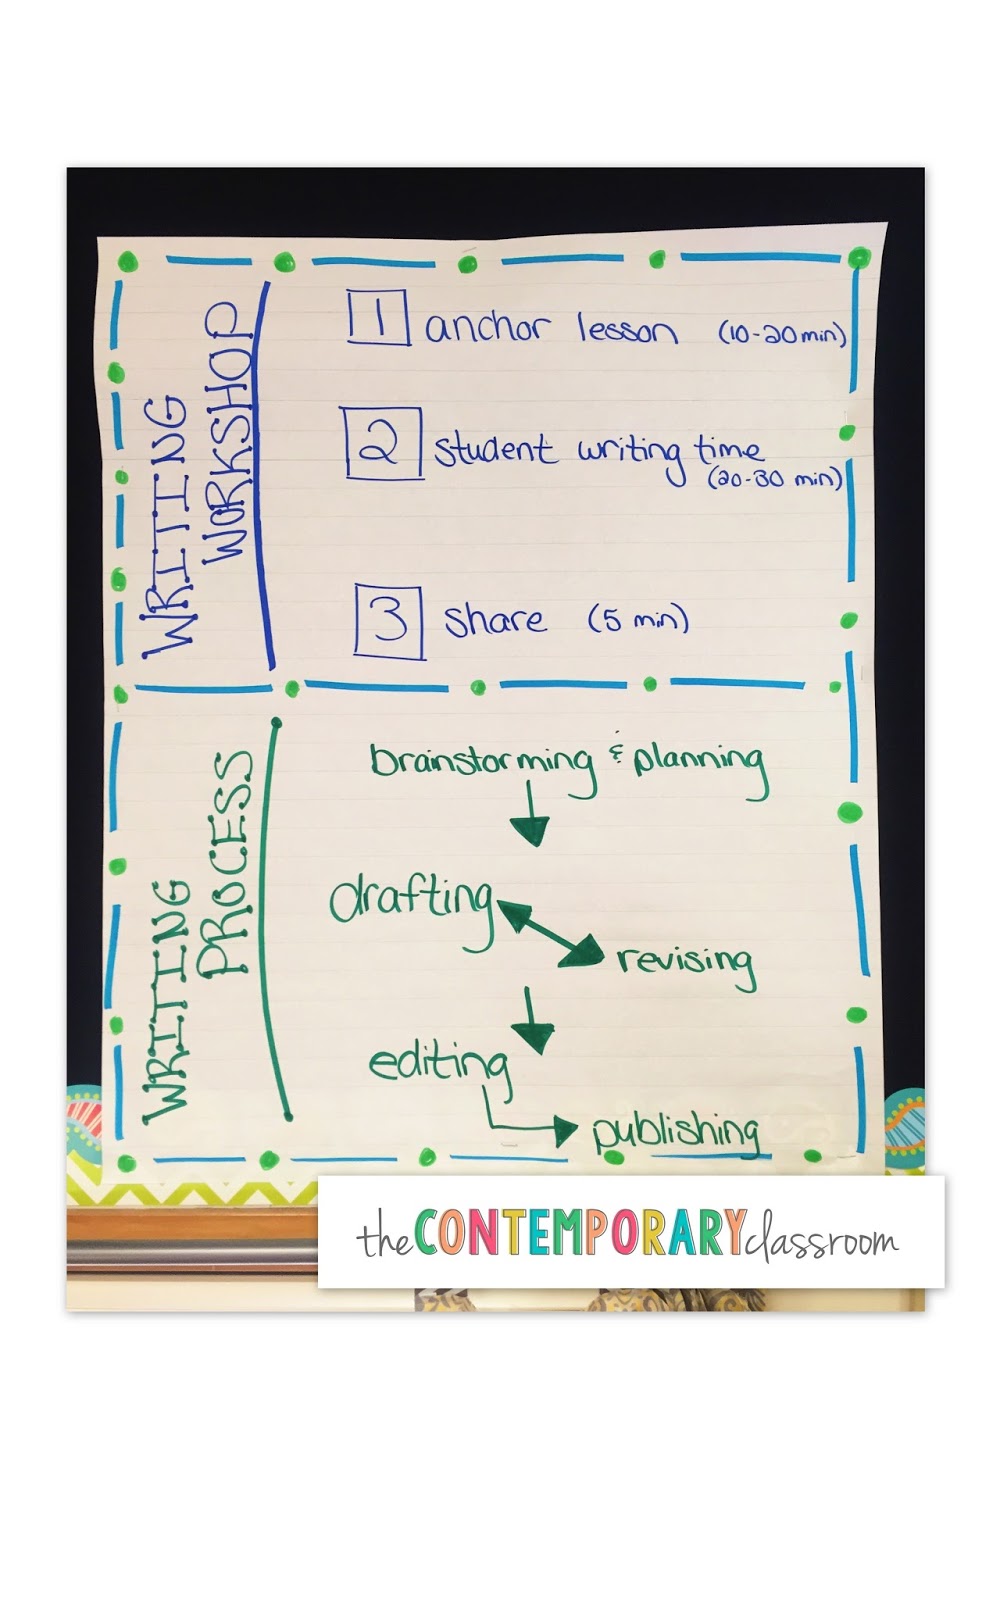 WRITING
WORKSHOP
1 anchor lesson (10-20 min)
2 student writing time
(20-30 min)
3 share (5 min)
WRITING
PROCESS
brainstorming & planning
drafting
revising
editing
publishing
the CONTEMPORARY classroom